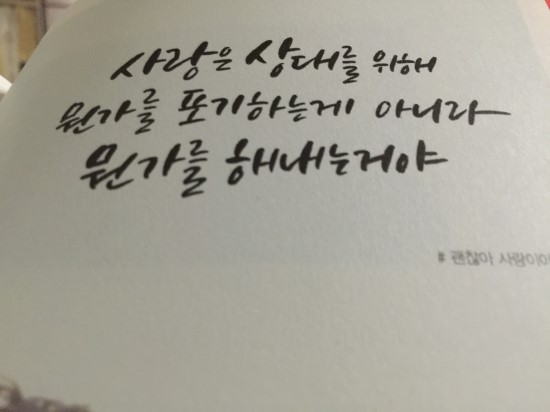 사랑은 상대를 위해
뭔가를 포기하는게 아니라
뭔가를 해내는거야
# 괜찮아 사랑이야